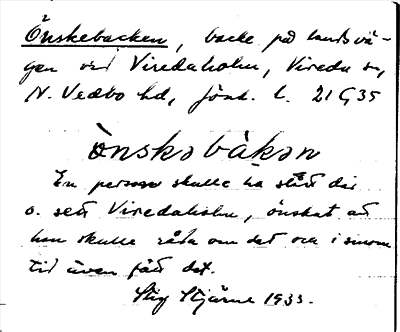 Önskebacken, backe på landsvä-
gen vid Viredaholm, Vireda sn,
N. Vedbo hd, Jönk. l. 21 G 35
önskəbàkən
En person skulle ha stått där
o. sett Viredaholm, önskat att
han skulle råda om det och i sinom
tid även fått det.
Stig Stjärne 1933.